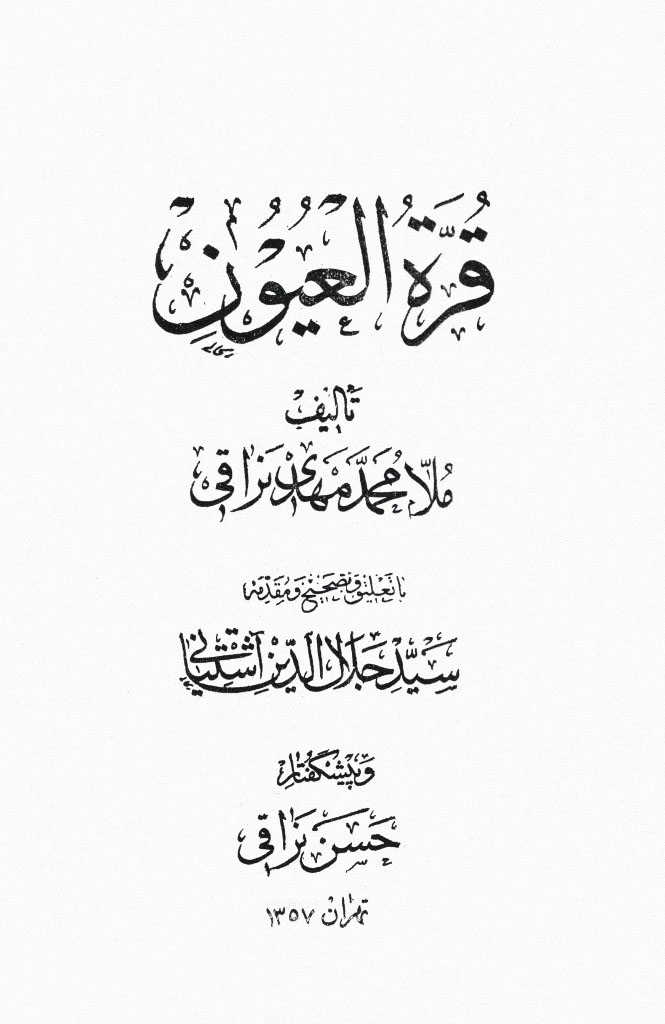 قُرَّةُ الْعُيُونِ
تَأليف
مُلّا مُحَمَّد مَهْدى نَراقى
با تَعْليق وَ تَصْحيح وَ مُقَدِّمهٔ
سَيِّد جَلال الدّين آشتيانى
وَ پيشگفتار
حَسَن نَراقى
تهران ۱۳۵۷